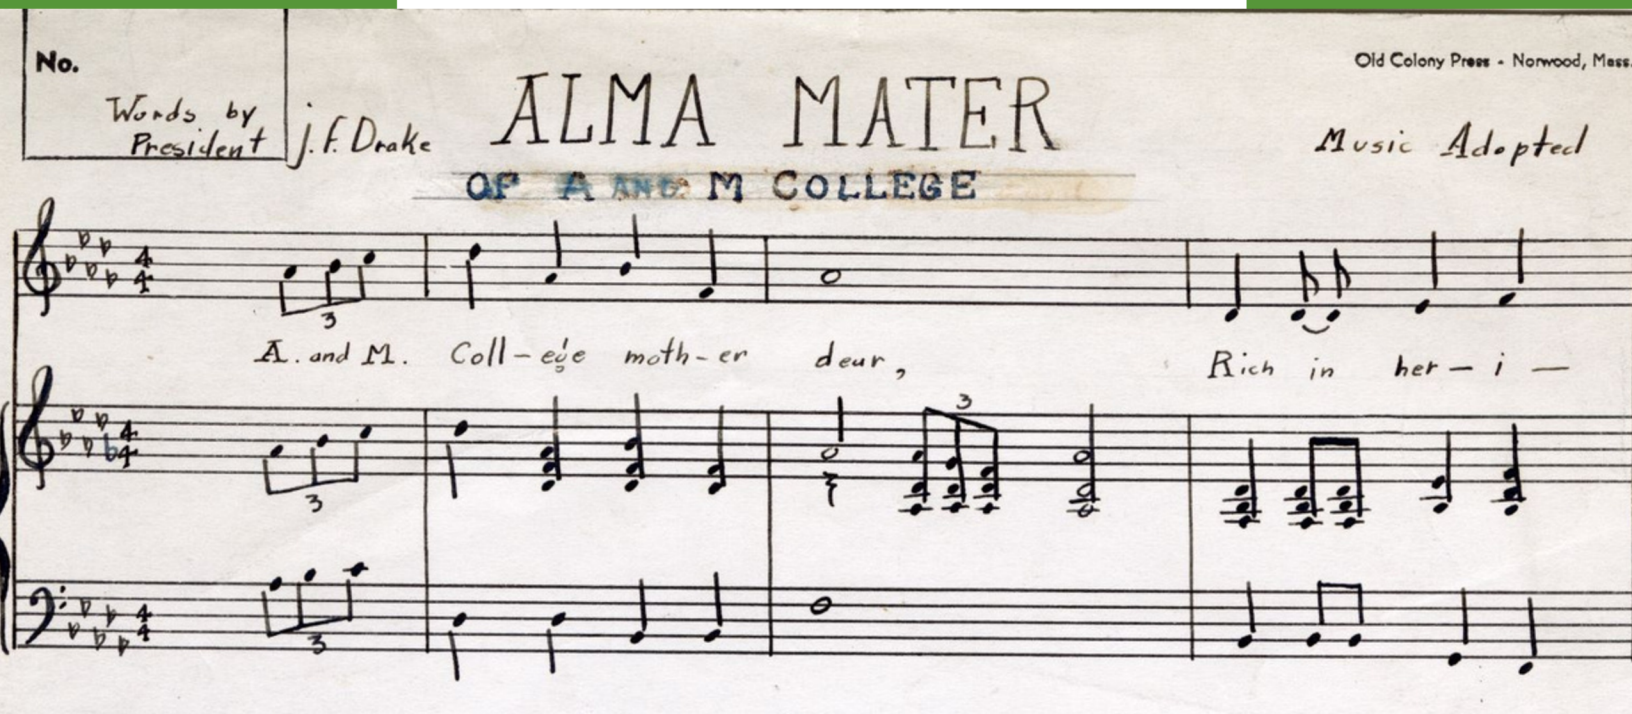 No.
Old Colony Press - Norwood, Mass.
Words by
President J.F. Drake
ALMA MATER
Music Adopted
OF A AND M COLLEGE
4
4
3
A. and M. Coll-ege moth-er dear, Rich in her-i-
4
4
3
3
4
4
3